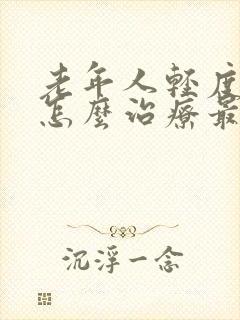 老年人輕度
怎麼治療最
沉浮一念